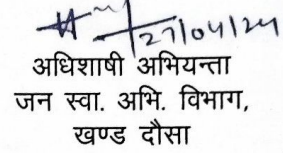 27/04/24
अधिशाषी अभियन्ता
जन स्वा. अभि. विभाग,
खण्ड दौसा